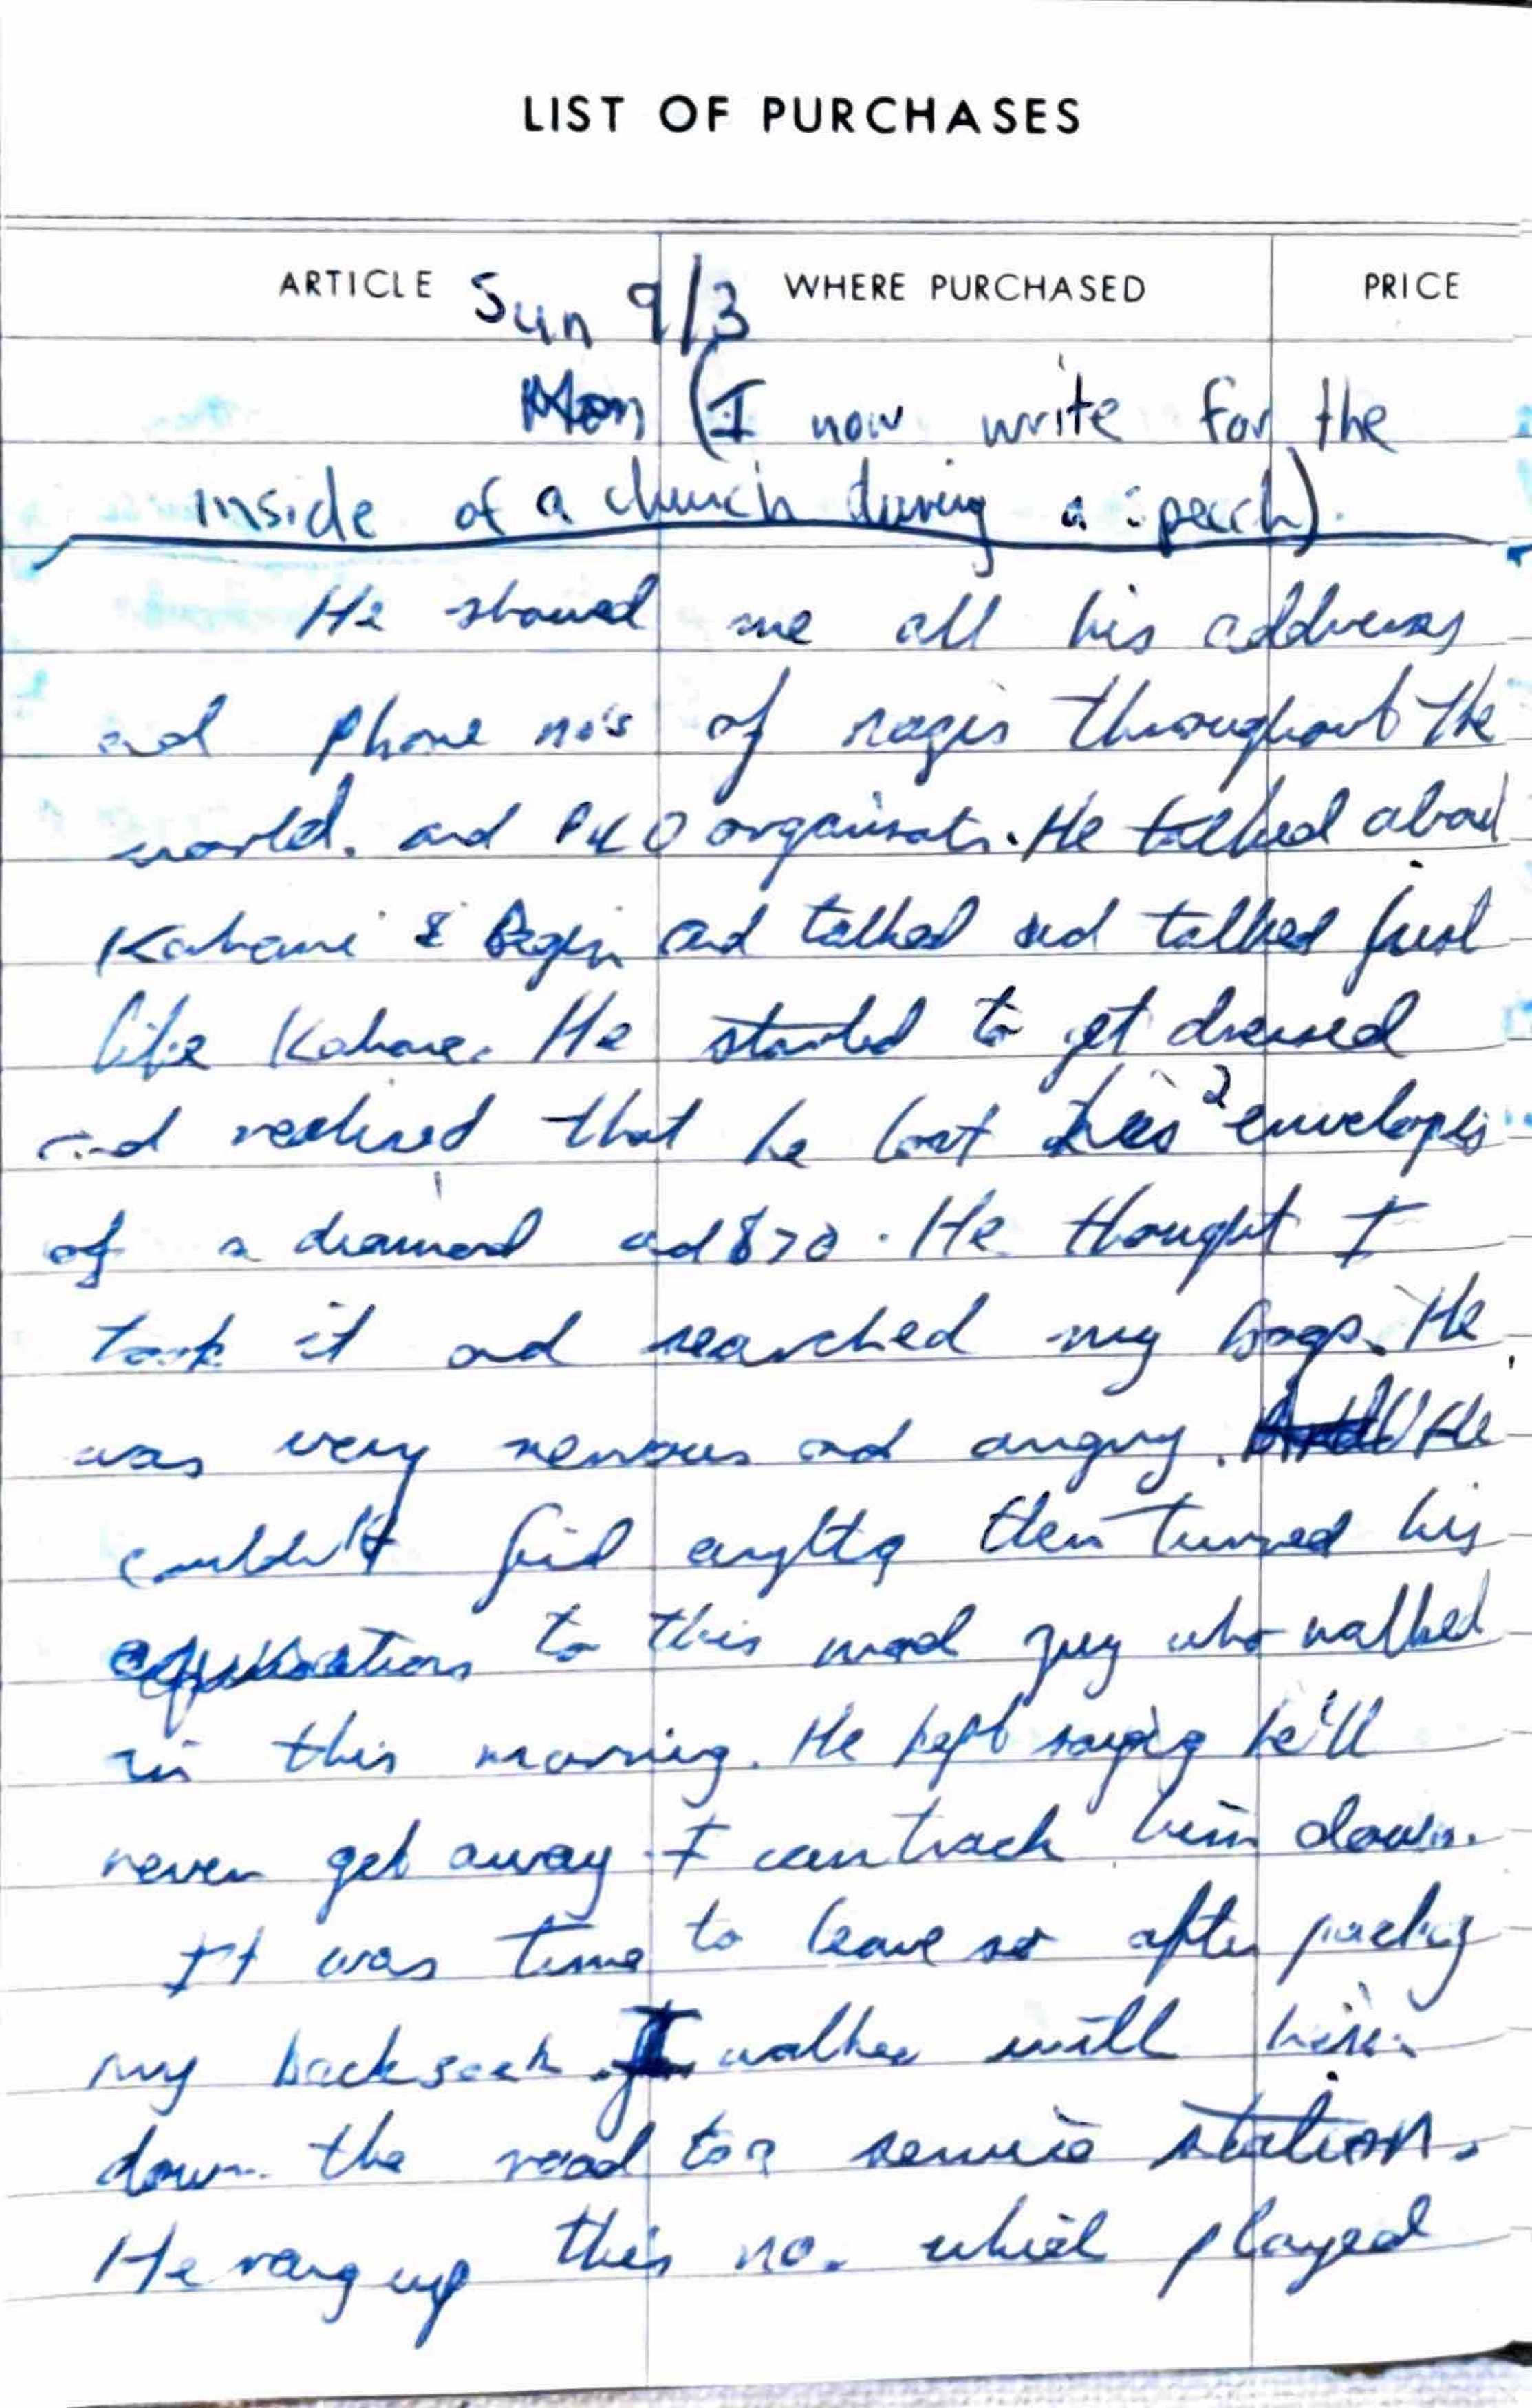 LIST OF PURCHASES
ARTICLE WHERE PURCHASED PRICE
Sun 9/3
Mon (I now write for the
inside of a church during a speech).
He showed me all his addresses
and phone no's of nazis throughout the
world. and PLO organisats. He talked about
Kahane & Begin and talked and talked just
like Kahane. He started to get dressed
and realised that he lost his 2 envelopes
of a diamond and $70. He thought I
took it and searched my bags. He
was very nervous and angry. He
couldn't find anythg then turned his
to this mad guy who walked
in this morning. He kept saying he'll
never get away I can track him down.
It was time to leave so after packig
my backsack I walked with him
down the road to a service station.
He rang up this no. which played